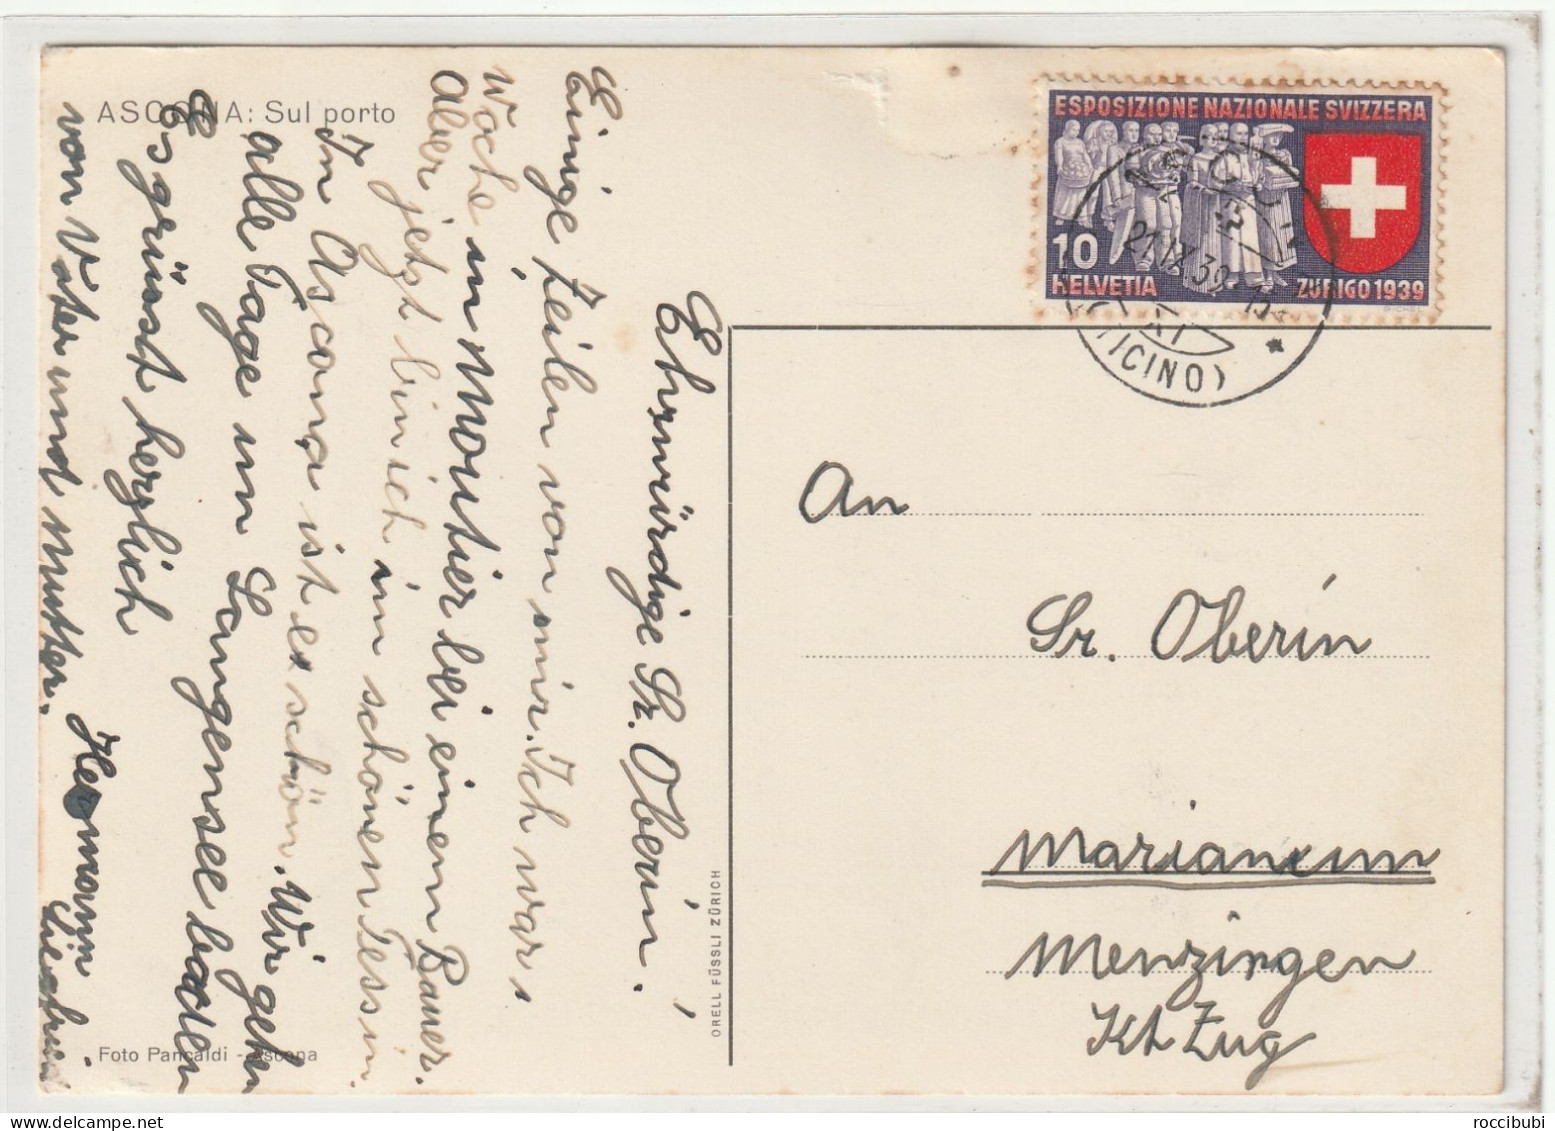 ASCONA: Sul porto
Ehrwürdige Sr. Oberin!
Einige Zeilen von mir. Ich war 1
Woche in Moutier bei einem Bauer.
aber jetzt bin ich im schönen Tessin.
In Ascona ist es schön. Wir gehn
alle Tage im Langensee baden
Es grüsst herzlich
Hermann
von Vater und Mutter.
Foto Pancaldi - Ascona
ORELL FÜSSLI ZÜRICH
ESPOSIZIONE NAZIONALE SVIZZERA
10
HELVETIA
ZURIGO 1939
21.IX.39.
(TICINO)
An
Sr. Oberin
Marianum
Menzingen
Kt Zug
roccibubi
www.delcampe.net